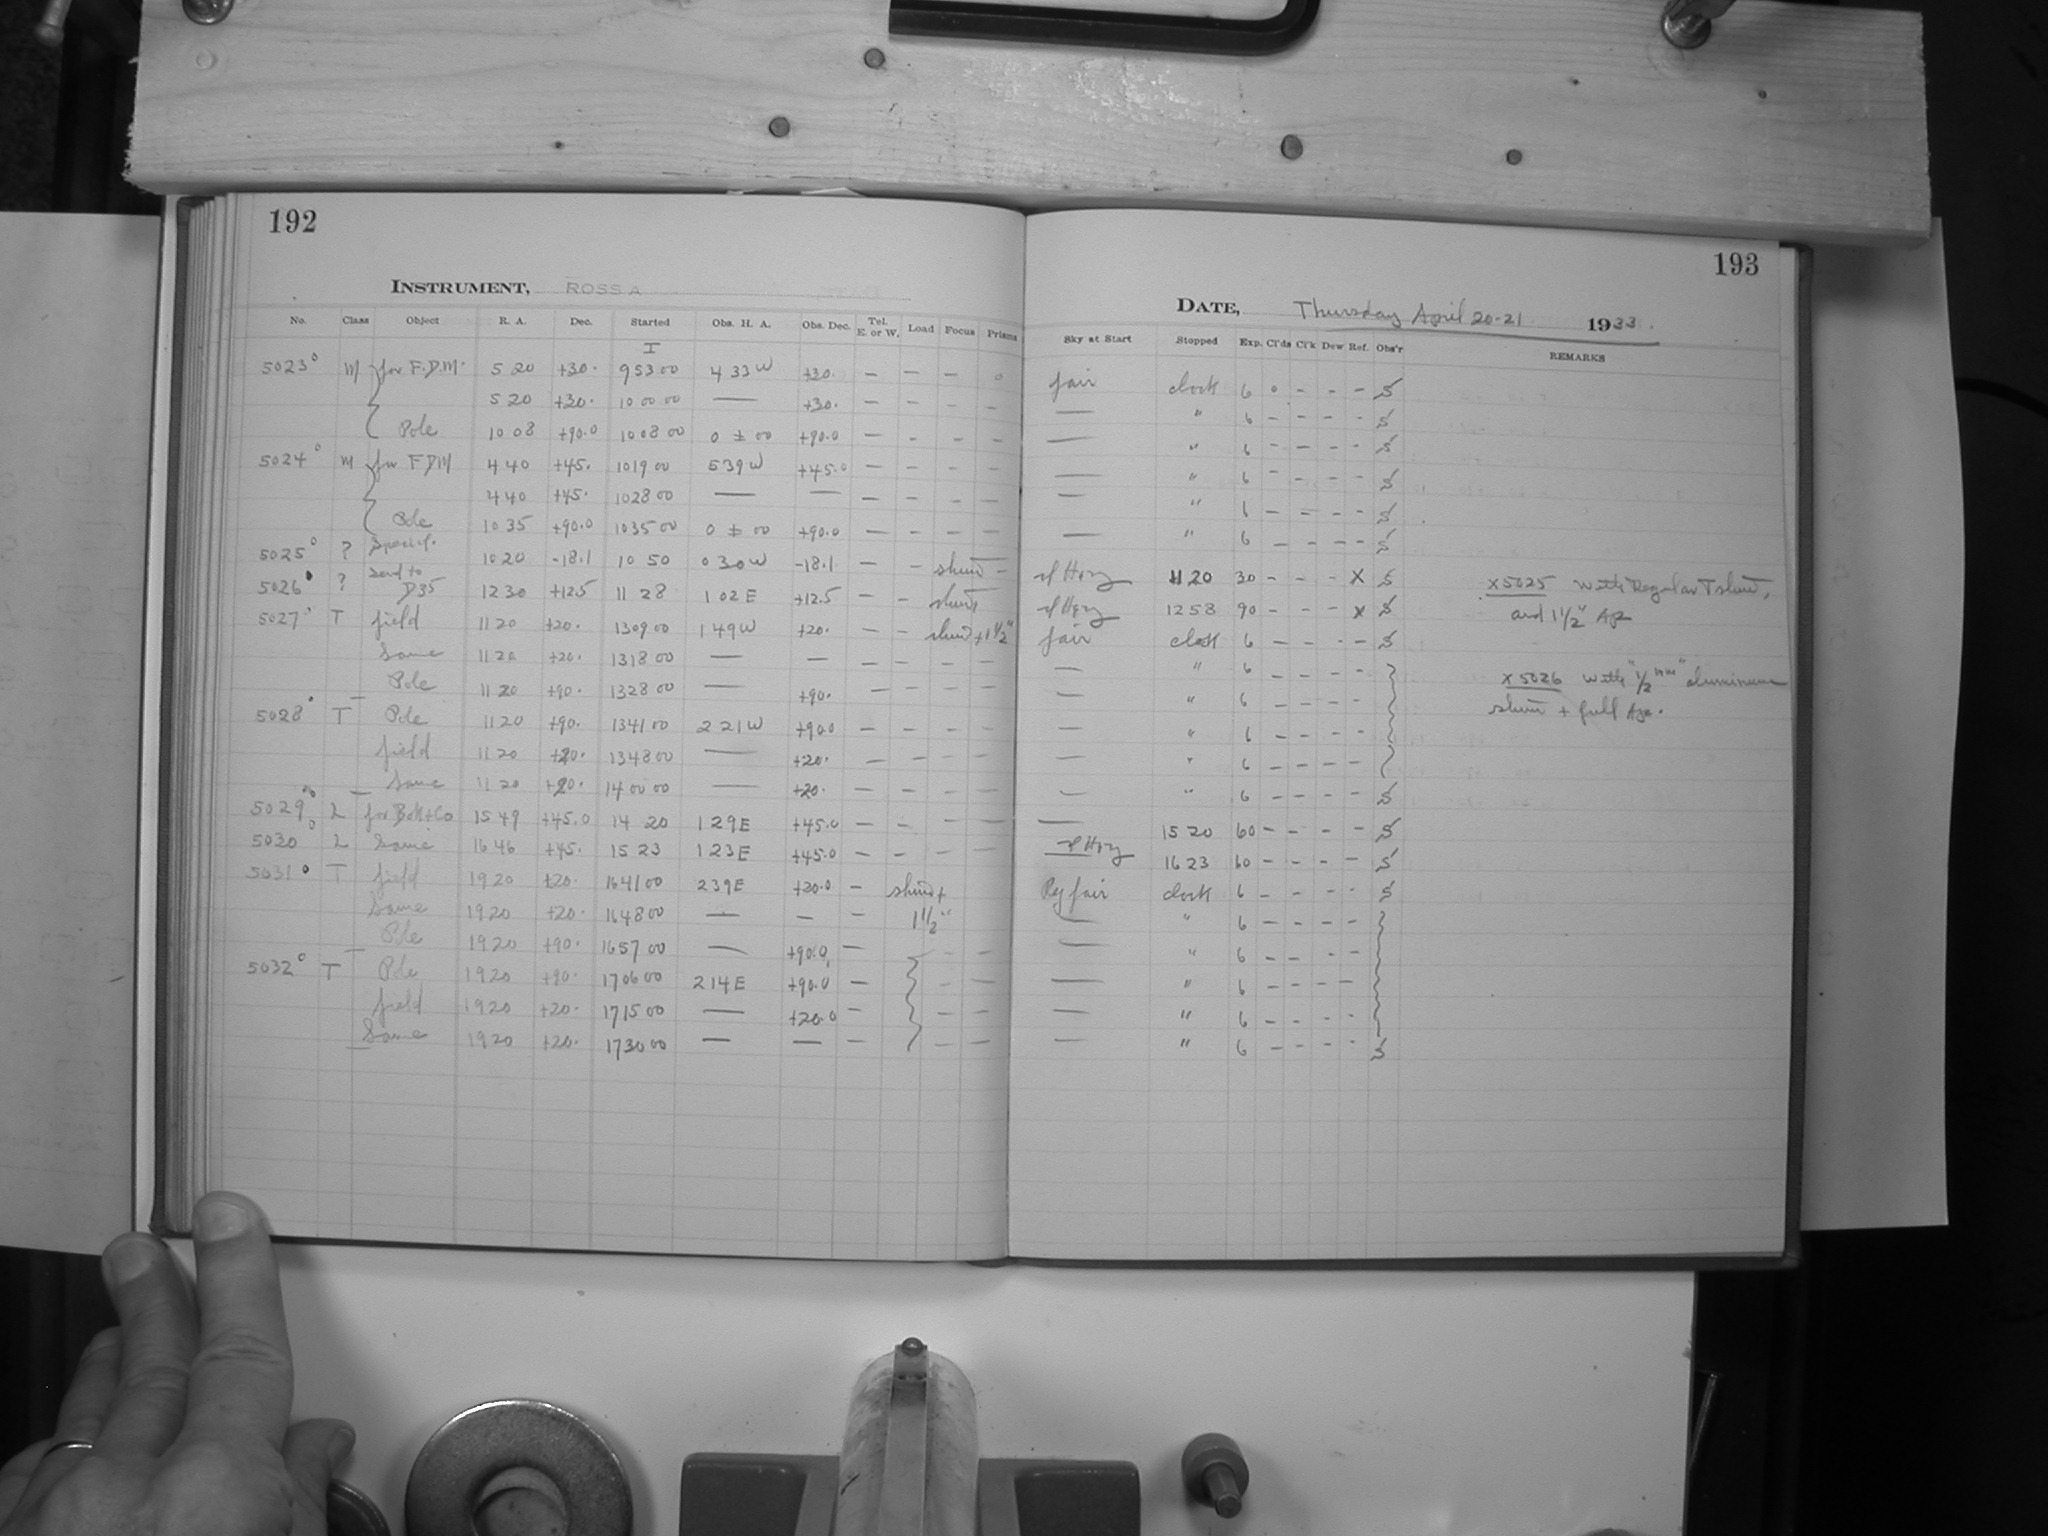 192
INSTRUMENT, ROSS A
No. Class Object R. A. Dec. Started Obs. H. A. Obs. Dec. Tel. E. or W. Load Focus Prisms
I
5023° M for F.D.M. 5 20 +30. 9 53 00 4 33 W +30. — — — o
5 20 +30. 10 00 00 — +30. — — — —
Pole 10 08 +90.0 10 08 00 0 ± 00 +90.0 — - - -
5024° M for FDM 4 40 +45. 10 19 00 5 39 W +45.0 — - - -
4 40 +45. 10 28 00 — — — - - —
Pole 10 35 +90.0 10 35 00 0 ± 00 +90.0 — — — —
5025° ? Special. 10 20 -18.1 10 50 0 30 W -18.1 — - shim —
5026 ? Send to D35 12 30 +12.5 11 28 1 02 E +12.5 — - shim
5027° T field 11 20 +20. 13 09 00 1 49 W +20. — — shim + 1 1/2"
Same 11 20 +20. 13 18 00 — — — - — —
Pole 11 20 +90. 13 28 00 — +90. — — — —
5028° T Pole 11 20 +90. 13 41 00 2 21 W +90.0 — - - -
field 11 20 +20. 13 48 00 — +20. — — — —
Same 11 20 +20. 14 00 00 — +20. — - - -
5029 L 15 49 +45.0 14 20 1 29 E +45.0 — - - -
5030 L Same 16 46 +45. 15 23 1 23 E +45.0 — - - -
5031° T field 19 20 +20. 16 41 00 2 39 E +20.0 — shim +
Same 19 20 +20. 16 48 00 — — — 1 1/2"
Pole 19 20 +90. 16 57 00 — +90.0 — - -
5032° T Pole 19 20 +90. 17 06 00 2 14 E +90.0 — - -
field 19 20 +20. 17 15 00 — +20.0 — - —
Same 19 20 +20. 17 30 00 — — — - —
193
DATE, Thursday April 20-21 1933.
Sky at Start Stopped Exp. Cl'ds Cl'k Dew Ref. Obs'r REMARKS
fair clock 6 o - - - S
— " 6 - - - - S
— " 6 - - - - S
— " 6 - - - - S
— " 6 - - - - S
— " 6 - - - - S
sl Hzy 11 20 30 - - - X S x5025 with Regular T shim,
sl Hzy 12 58 90 - - - x S and 1 1/2" Ap
fair clock 6 - - - - S
— " 6 - - - - x 5026 with "1/2 mm" aluminum
— " 6 - - - - shim + full Ape.
— " 6 - - - -
— " 6 - - - -
— " 6 - - - - S
— 15 20 60 - - - - S
sl Hzy 16 23 60 - - - - S
fair clock 6 - - - - S
— " 6 - - - -
— " 6 - - - -
— " 6 - - - -
— " 6 - - - -
— " 6 - - - - S